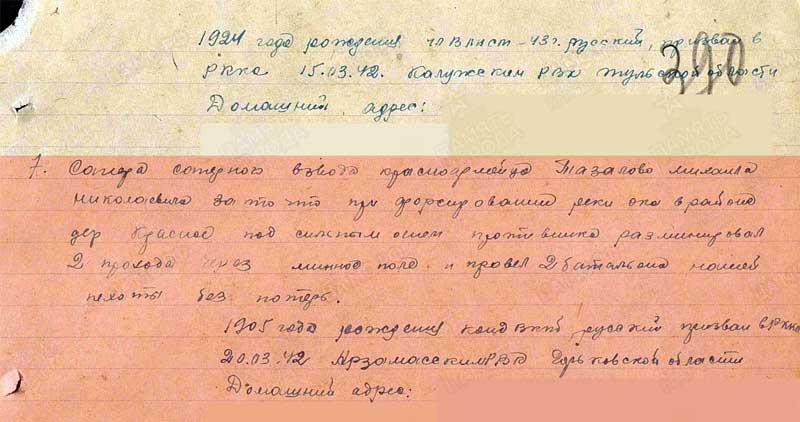 1924 года рождения чл ВЛКСМ - 43 г. русский, призван в
РККА 15.03.42. Калужским РВК Тульской области
390
Домашний адрес:
7. Сапера саперного взвода красноармейца Тазалово Михаила
Николаевича за то что при форсировании реки ока в районе
дер Красное под сильным огнем противника разминировал
2 прохода через минное поле и провел 2 батальона нашей
пехоты без потерь.
1905 года рождения канд ВКПб, русский призван в РККА
20.03.42 Арзамасским РВК Горьковской области
Домашний адрес: